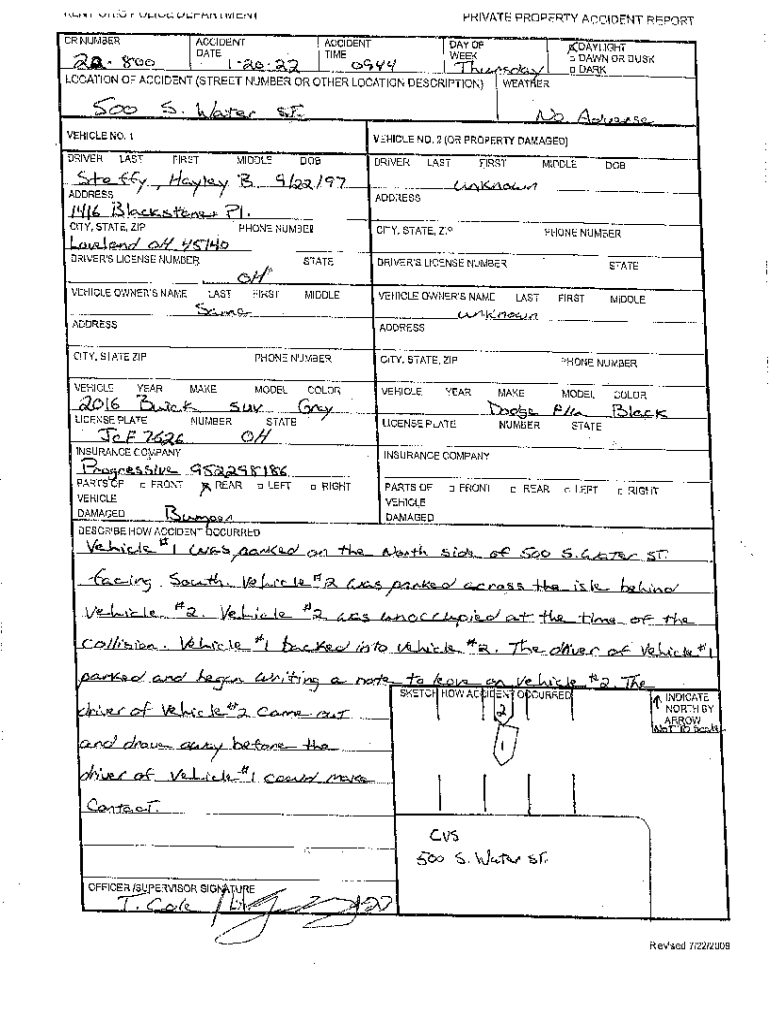 KENT OHIO POLICE DEPARTMENT PRIVATE PROPERTY ACCIDENT REPORT
CR NUMBER ACCIDENT DATE ACCIDENT TIME DAY OF WEEK DAYLIGHT
22-800 1-20-22 0944 Thursday DAWN OR DUSK
DARK
LOCATION OF ACCIDENT (STREET NUMBER OR OTHER LOCATION DESCRIPTION) WEATHER
500 S. Water ST. No Adverse
VEHICLE NO. 1 VEHICLE NO. 2 (OR PROPERTY DAMAGED)
DRIVER LAST FIRST MIDDLE DOB DRIVER LAST FIRST MIDDLE DOB
Steffy, Hayley B 9/22/97 unknown
ADDRESS ADDRESS
1416 Blackstone Pl.
CITY, STATE, ZIP PHONE NUMBER CITY, STATE, ZIP PHONE NUMBER
Loveland OH 45140
DRIVER'S LICENSE NUMBER STATE DRIVER'S LICENSE NUMBER STATE
OH
VEHICLE OWNER'S NAME LAST FIRST MIDDLE VEHICLE OWNER'S NAME LAST FIRST MIDDLE
Same unknown
ADDRESS ADDRESS
CITY, STATE ZIP PHONE NUMBER CITY, STATE, ZIP PHONE NUMBER
VEHICLE YEAR MAKE MODEL COLOR VEHICLE YEAR MAKE MODEL COLOR
2016 Buick SUV Gray Dodge Black
LICENSE PLATE NUMBER STATE LICENSE PLATE NUMBER STATE
JCF 7626 OH
INSURANCE COMPANY INSURANCE COMPANY
Progressive 952298186
PARTS OF VEHICLE DAMAGED FRONT REAR LEFT RIGHT PARTS OF VEHICLE DAMAGED FRONT REAR LEFT RIGHT
Bumper
DESCRIBE HOW ACCIDENT OCCURRED
Vehicle #1 was parked on the North side of 500 S. Water ST.
facing South. Vehicle #2 was parked across the isle behind
Vehicle #2. Vehicle #2 was unoccupied at the time of the
collision. Vehicle #1 backed into vehicle #2. The driver of Vehicle #1
parked and began writing a note to leave on vehicle #2. The
driver of Vehicle #2 came out
and drove away before the
driver of Vehicle #1 could make
Contact.
SKETCH HOW ACCIDENT OCCURRED
INDICATE NORTH BY ARROW
Not To Scale
2
1
CVS
500 S. Water ST.
OFFICER/SUPERVISOR SIGNATURE
T. Cole
Revised 7/22/2009